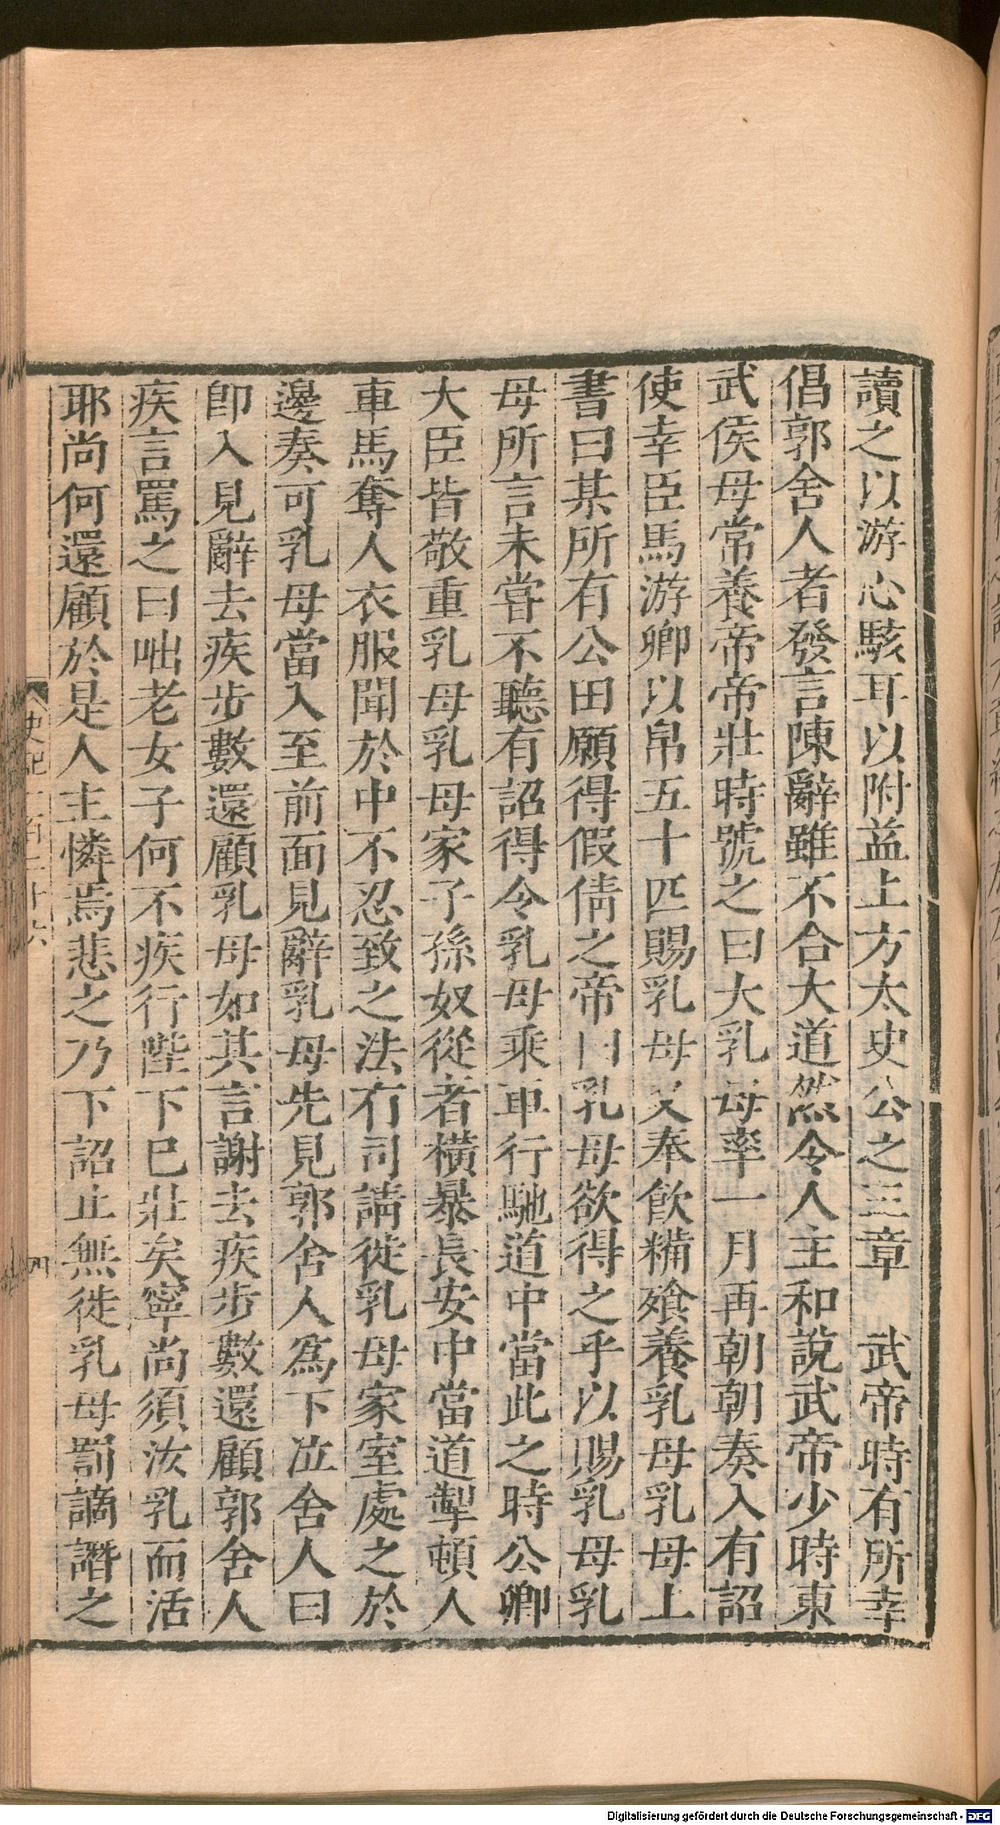 讀之以游心駭耳以附益上方太史公之三章　武帝時有所幸
倡郭舍人者發言陳辭雖不合大道然令人主和說武帝少時東
武侯母常養帝帝壯時號之曰大乳母率一月再朝朝奏入有詔
使幸臣馬游卿以帛五十匹賜乳母又奉飮糒飱養乳母乳母上
書曰某所有公田願得假倩之帝曰乳母欲得之乎以賜乳母乳
母所言未嘗不聽有詔得令乳母乘車行馳道中當此之時公卿
大臣皆敬重乳母乳母家子孫奴從者橫暴長安中當道掣頓人
車馬奪人衣服聞於中不忍致之法有司請徙乳母家室處之於
邊奏可乳母當入至前面見辭乳母先見郭舍人爲下泣舍人曰
卽入見辭去疾步數還顧乳母如其言謝去疾步數還顧郭舍人
疾言罵之曰咄老女子何不疾行陛下已壯矣寧尚須汝乳而活
耶尚何還顧於是人主憐焉悲之乃下詔止無徙乳母罰謫譖之
史記一百二十六
四
Digitalisierung gefördert durch die Deutsche Forschungsgemeinschaft - DFG